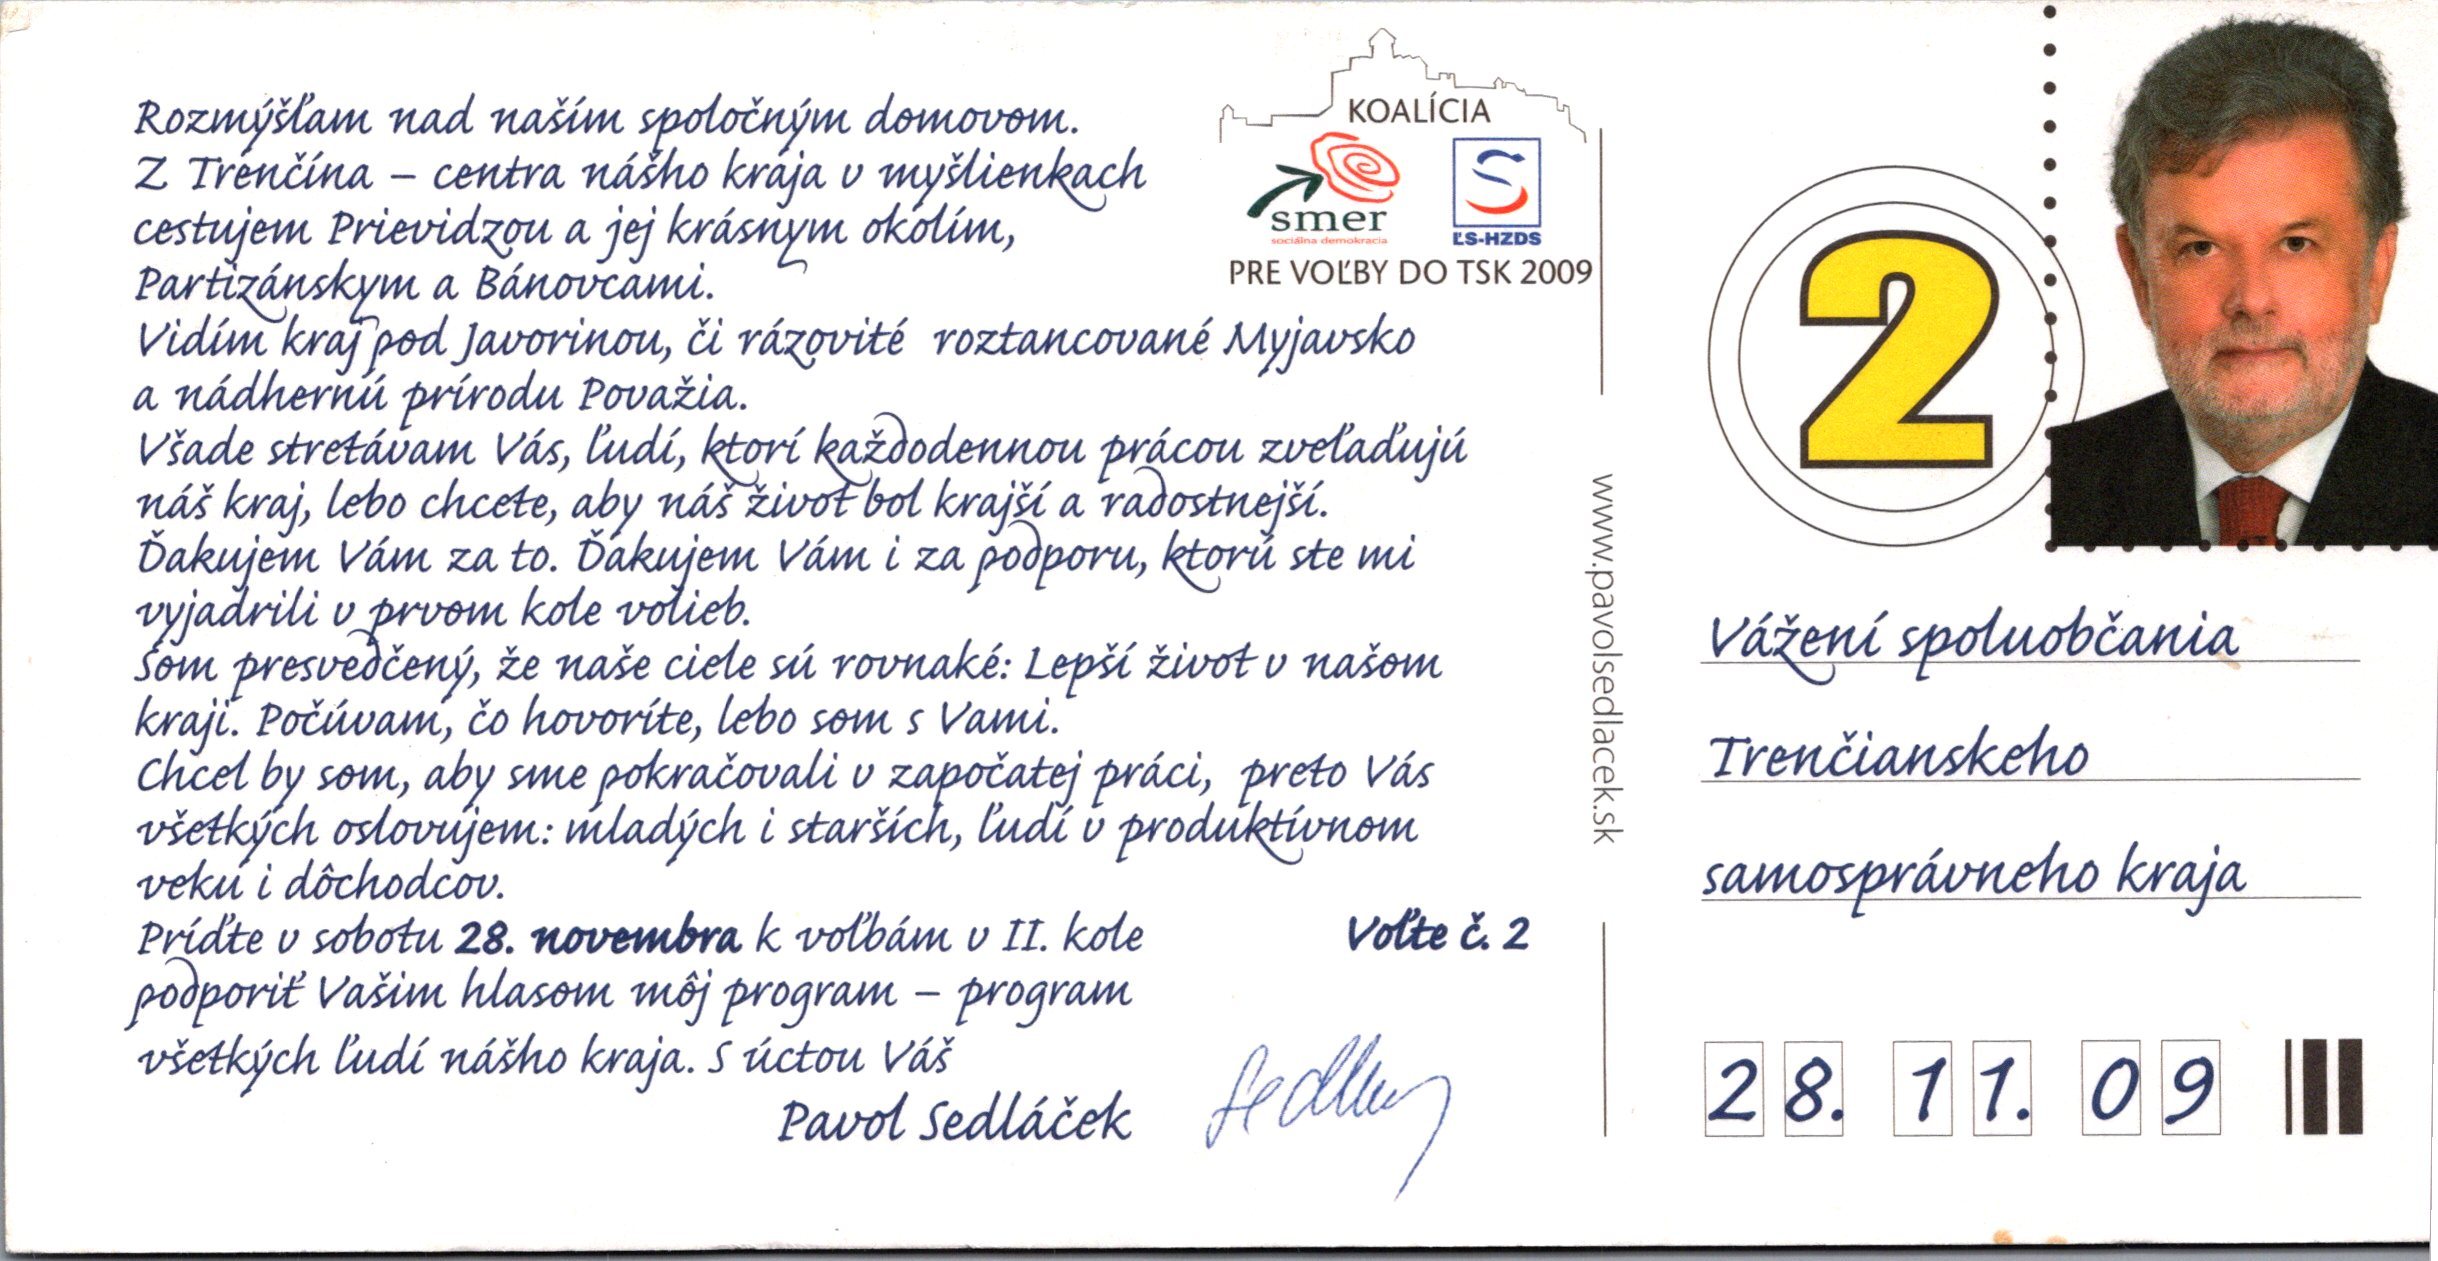 Rozmýšľam nad naším spoločným domovom.
Z Trenčína – centra nášho kraja v myšlienkach
cestujem Prievidzou a jej krásnym okolím,
Partizánskym a Bánovcami.
Vidím kraj pod Javorinou, či rázovité roztancované Myjavsko
a nádhernú prírodu Považia.
Všade stretávam Vás, ľudí, ktorí každodennou prácou zveľaďujú
náš kraj, lebo chcete, aby náš život bol krajší a radostnejší.
Ďakujem Vám za to. Ďakujem Vám i za podporu, ktorú ste mi
vyjadrili v prvom kole volieb.
Som presvedčený, že naše ciele sú rovnaké: Lepší život v našom
kraji. Počúvam, čo hovoríte, lebo som s Vami.
Chcel by som, aby sme pokračovali v započatej práci, preto Vás
všetkých oslovujem: mladých i starších, ľudí v produktívnom
veku i dôchodcov.
Príďte v sobotu 28. novembra k voľbám v II. kole
podporiť Vašim hlasom môj program – program
všetkých ľudí nášho kraja. S úctou Váš
Pavol Sedláček
Voľte č. 2
KOALÍCIA
smer
sociálna demokracia
ĽS-HZDS
PRE VOĽBY DO TSK 2009
www.pavolsedlacek.sk
2
Vážení spoluobčania
Trenčianskeho
samosprávneho kraja
28. 11. 09